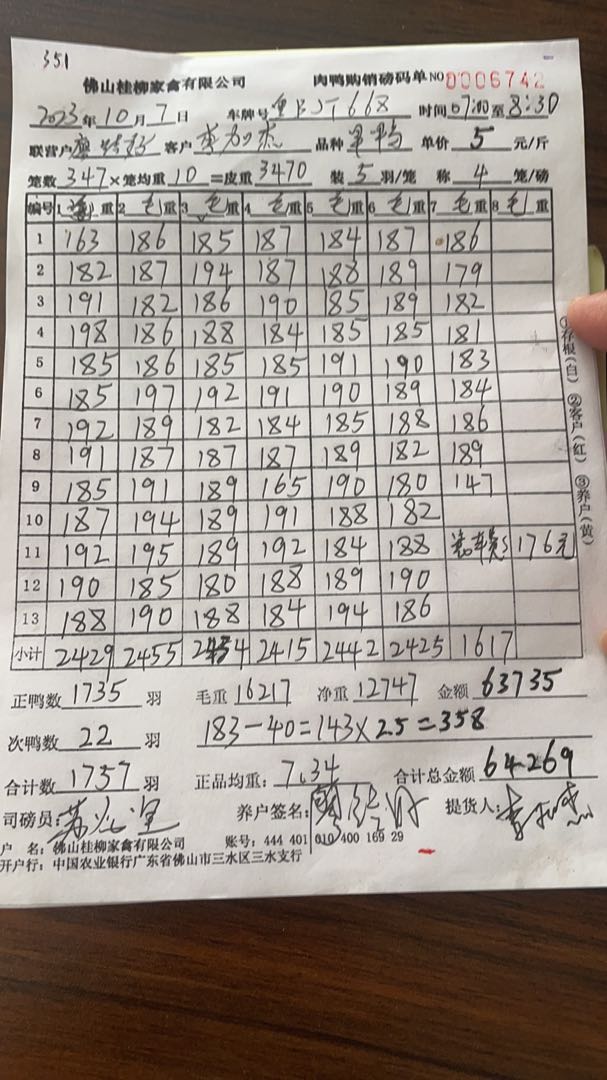 351
佛山桂柳家禽有限公司 肉鸭购销磅码单 NO 0006742
2023年10月7日 车牌号 668 时间 07:00 至 8:30
联营户 客户 品种 单价 5 元/斤
笼数 347 × 笼均重 10 = 皮重 3470 装 5 羽/笼 称 4 笼/磅
编号 1 毛重 2 毛重 3 毛重 4 毛重 5 毛重 6 毛重 7 毛重 8 毛重
1 163 186 185 187 184 187 186
2 182 187 194 187 188 189 179
3 191 182 186 190 185 189 182
4 198 186 188 184 185 185 181
5 185 186 185 185 191 190 183
6 185 197 192 191 190 189 184
7 192 189 182 184 185 188 186
8 191 187 187 187 189 182 189
9 185 191 189 165 190 180 147
10 187 194 189 191 188 182
11 192 195 189 192 184 188 176元
12 190 185 180 188 189 190
13 188 190 188 184 194 186
小计 2429 2455 2434 2415 2442 2425 1617
正鸭数 1735 羽 毛重 16217 净重 12747 金额 63735
次鸭数 22 羽 183-40=143×2.5=358
合计数 1757 羽 正品均重: 7.34 合计总金额 64269
司磅员: 养户签名: 提货人:
户 名: 佛山桂柳家禽有限公司 账号: 444 401 010 400 169 29
开户行: 中国农业银行广东省佛山市三水区三水支行
①存根(白) ②客户(红) ③养户(黄)